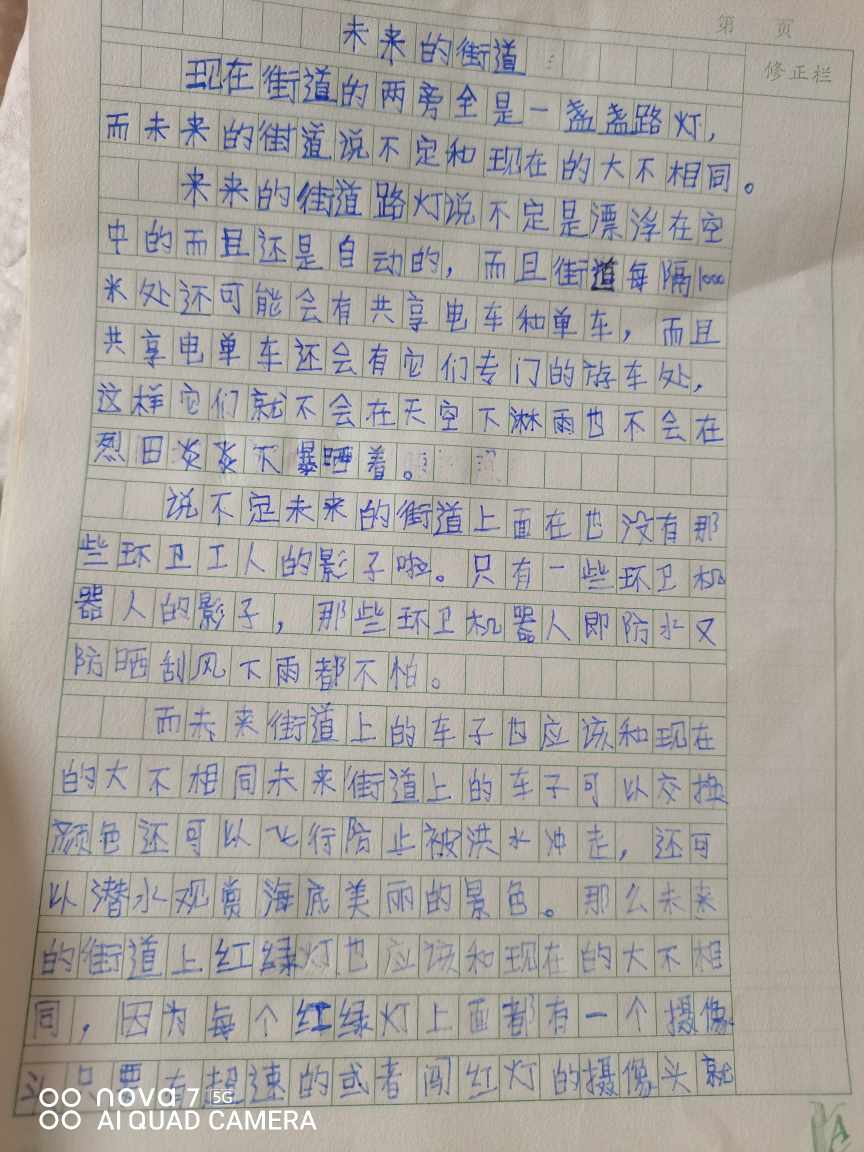 第 页
修正栏
未来的街道
现在街道的两旁全是一盏盏路灯，
而未来的街道说不定和现在的大不相同。
来来的街道路灯说不定是漂浮在空
中的而且还是自动的，而且街道每隔1000
米处还可能会有共享电车和单车，而且
共享电单车还会有它们专门的停车处，
这样它们就不会在天空下淋雨也不会在
烈日炎炎下暴晒着。
说不定未来的街道上面在也没有那
些环卫工人的影子啦。只有一些环卫机
器人的影子，那些环卫机器人即防水又
防晒刮风下雨都不怕。
而未来街道上的车子也应该和现在
的大不相同未来街道上的车子可以交换
颜色还可以飞行防止被洪水冲走，还可
以潜水观赏海底美丽的景色。那么未来
的街道上红绿灯也应该和现在的大不相
同，因为每个红绿灯上面都有一个摄像
头只要有超速的或者闯红灯的摄像头就
nova 7 5G
AI QUAD CAMERA